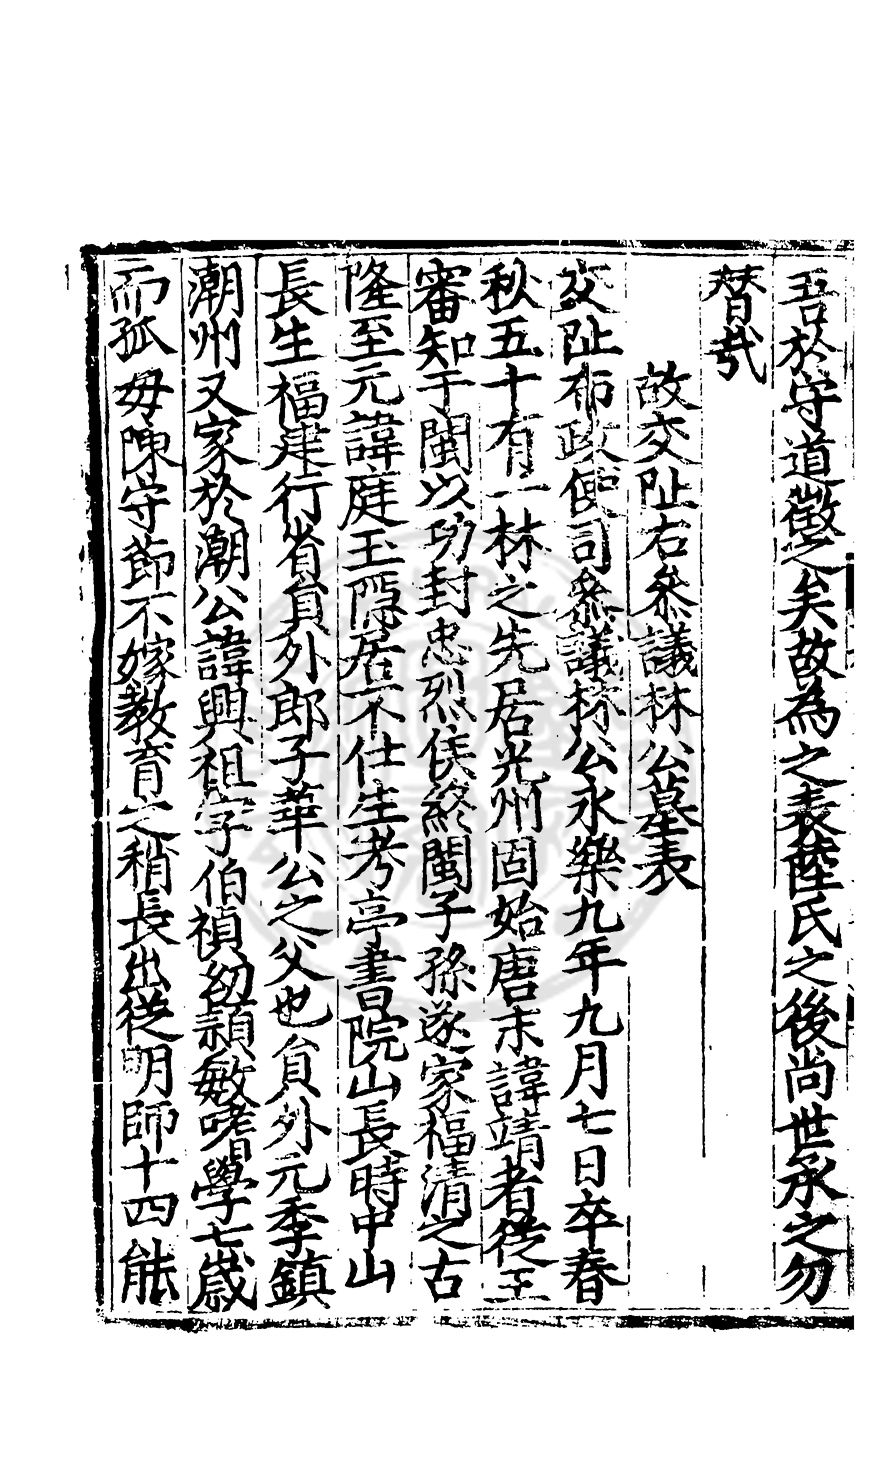 吾於守道徵之矣故為之表陸氏之後尚世承之勿
替哉
故交阯右叅議林公墓表
交阯布政使司叅議林公永樂九年九月七日卒春
秋五十有一林之先居光州固始唐末諱靖者從王
審知于閩以功封忠烈侯終閩子孫遂家福清之古
隆至元諱庭玉隠居不仕生考亭書院山長時中山
長生福建行省貟外郎子華公之父也貟外元季鎮
潮州又家於潮公諱興祖字伯禎幼頴敏嗜學七歲
而孤毋陳守節不嫁教育之稍長出從明師十四能